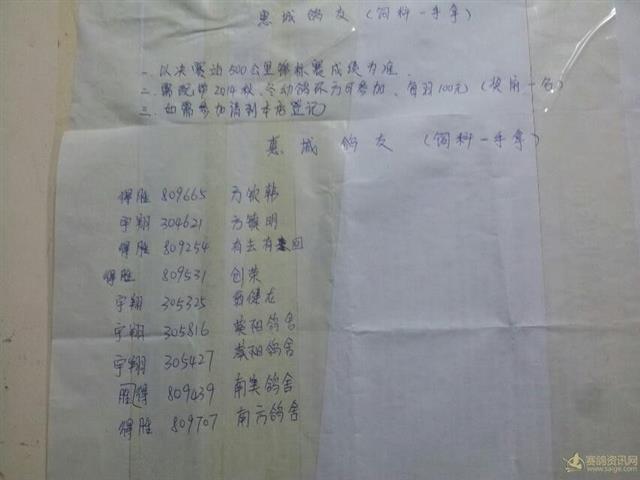 惠城鸽友(饲料一手拿)
一.以决赛站500公里锦标赛成绩为准.
二.需配带2014秋、冬幼鸽环方可参加、每羽100元(奖前一名)
三.如需参加请到本店登记
惠城鸽友(饲料一手拿)
得胜 809665 方钦韩
宇翔 304621 方镇明
得胜 809254 有去有回
得胜 809531 创荣
宇翔 305325 俊龙
宇翔 305816 葵阳鸽舍
宇翔 305427 葵阳鸽舍
胜得 809439 南美鸽舍
得胜 809707 南方鸽舍
赛鸽资讯网
www.saige.com